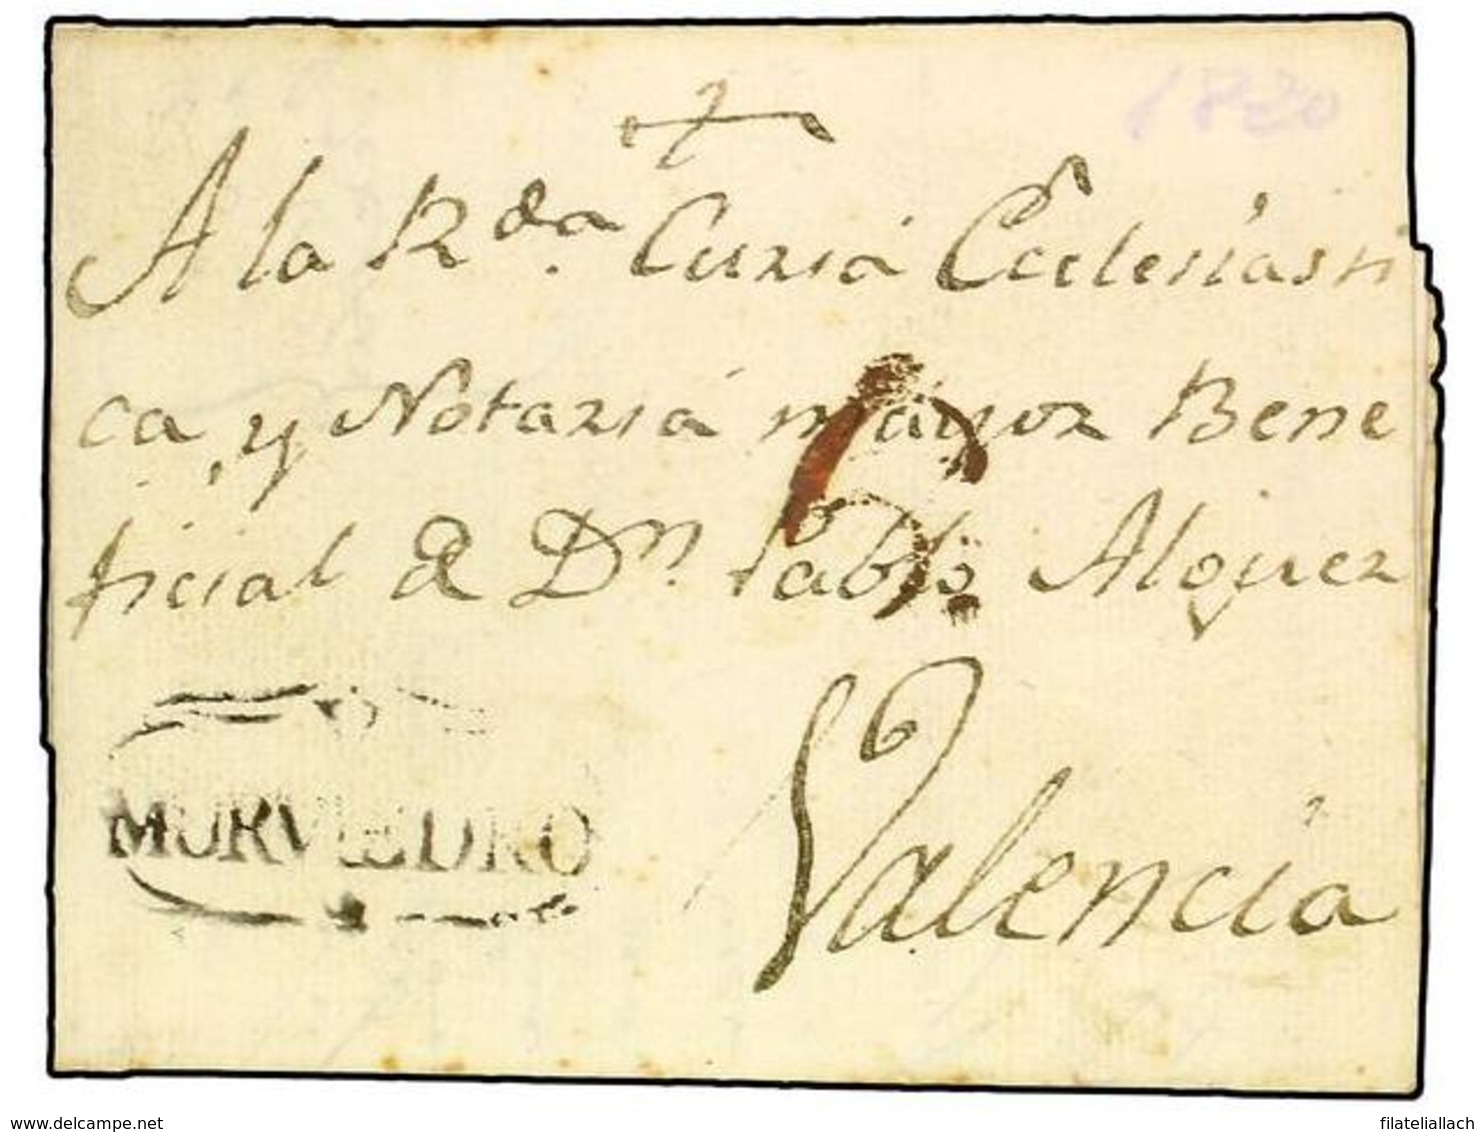 1820
A la Rda. Curia Ecclesiasti
ca, y Notaria mayor Bene
ficial de Dn. Pablo Alguer
6
MURVIEDRO
Valencia
www.delcampe.net
filateliallach